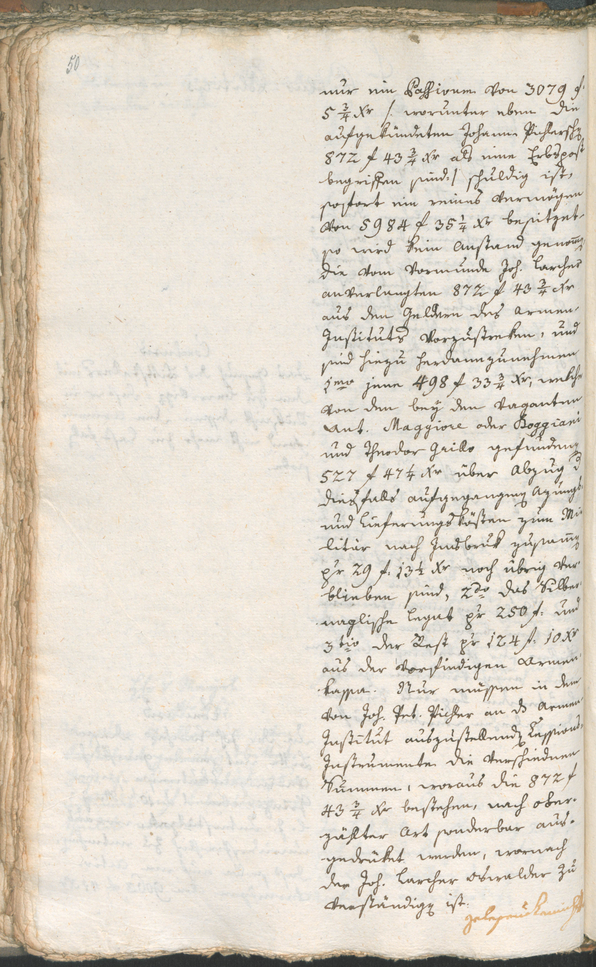 50
nur ein Passivum von 3079 f.
5 3/4 Xr /: worunter eben die
aufgekündeten Johann Pichlersch.
872 f 43 3/4 Xr als eine Erbspost
begriffen sind :/ schuldig ist,
sofort ein reines Vermögen
von 5984 f 35 1/4 Xr besitzet.
so wird kein Anstand genomen
die vom Vormunde Joh. Larcher
anverlangten 872 f 43 3/4 Xr
aus den Geldern des Armen-
Instituts vorzustreken, und
sind hiezu herdannzunehmen
1mo jene 498 f 33 3/4 Xr, welche
von den bey den Vaganten
Ant. Maggiore oder Boggiani
und Theodor Grillo gefundenen
527 f 47 1/4 Xr über Abzug d
diesfalls aufgegangen Azungs
und Lieferungskösten zum Mi-
litär nach Innsbruk zusamen
pr 29 f. 13 1/2 Xr noch übrig ver-
blieben sind, 2do das Silber-
naglische Legat pr 250 f. und
3tio der Rest pr 124 f. 10 Xr
aus der vorfindigen Armen-
kassa. Nur müssen in dem
von Joh. Pet. Pichler an ds Armen
Institut auszustellenden Cessions
Instrumente die verschiedenen
Summen, woraus die 872 f
43 3/4 Xr bestehen, nach ober-
zählter Art sonderbar aus-
gedrüket werden, wornach
der Joh. Larcher Oswalder zu
verständigen ist.